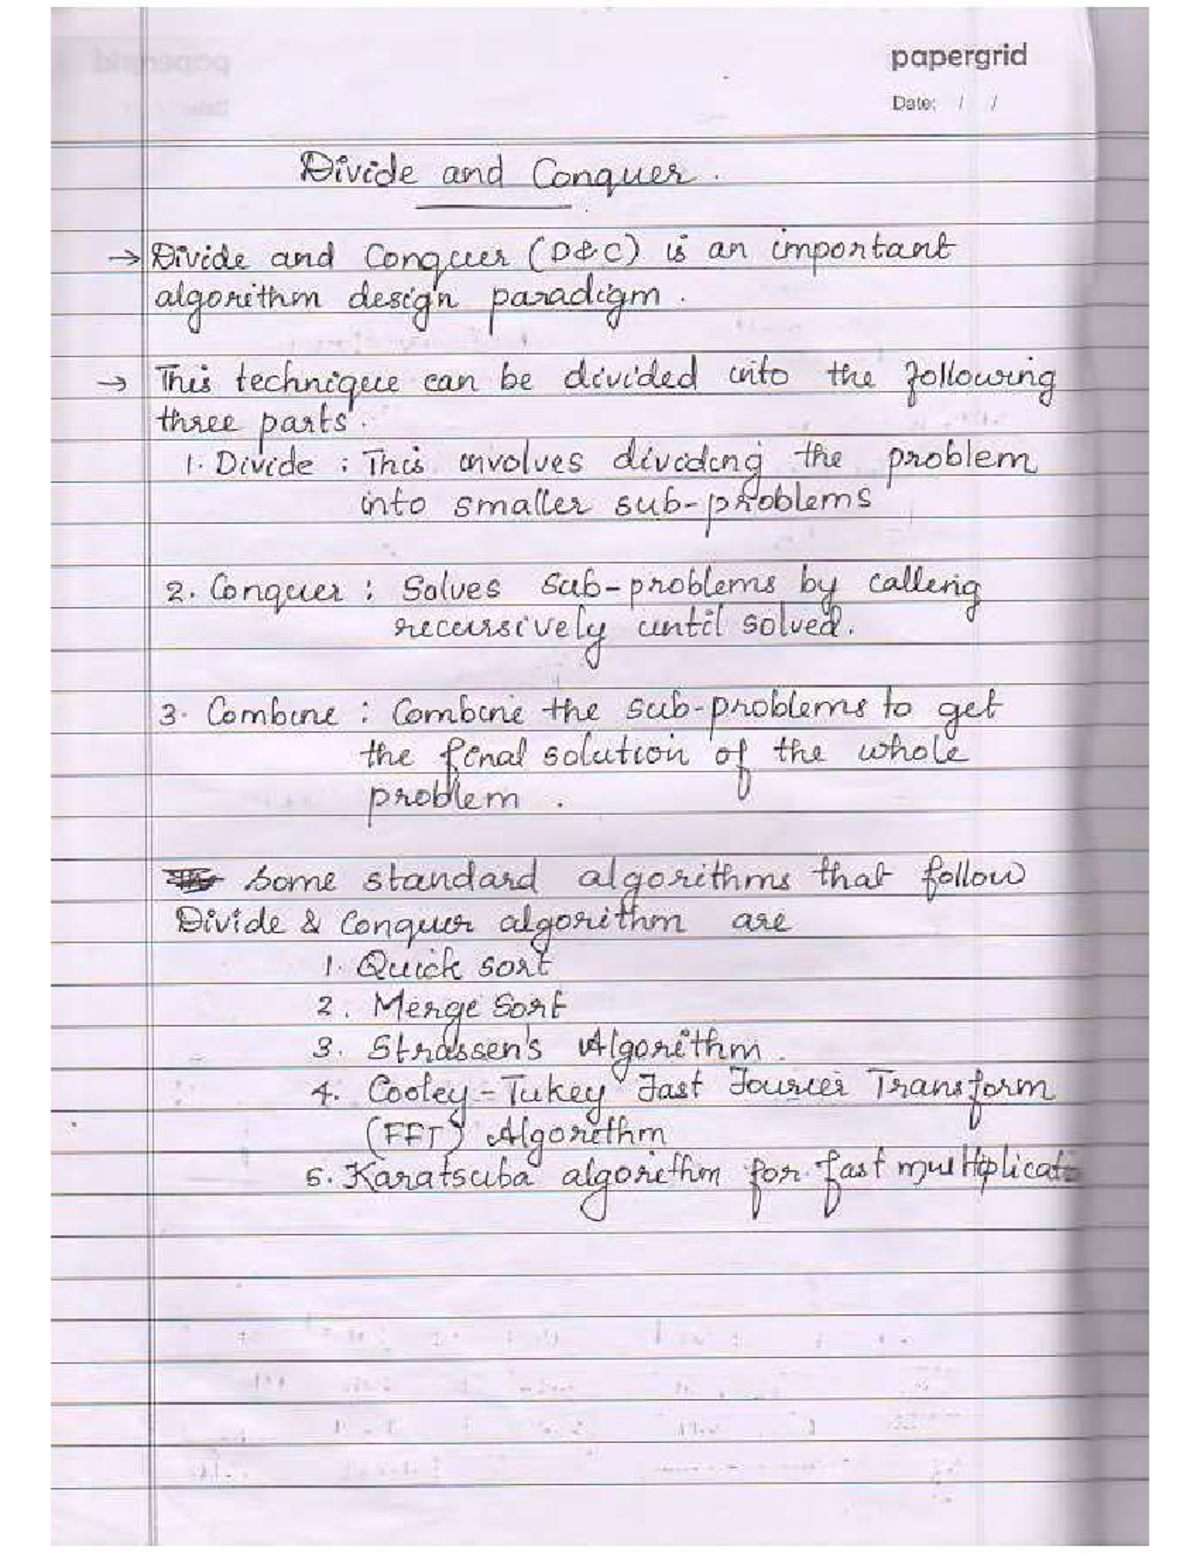 papergrid
Date: / /
Divide and Conquer.
→ Divide and Conquer (D&C) is an important
algorithm design paradigm.
→ This technique can be divided into the following
three parts.
1. Divide : This involves dividing the problem
into smaller sub-problems
2. Conquer : Solves sub-problems by calling
recursively until solved.
3. Combine : Combine the sub-problems to get
the final solution of the whole
problem.
Some standard algorithms that follow
Divide & Conquer algorithm are
1. Quick sort
2. Merge Sort
3. Strassen's Algorithm.
4. Cooley-Tukey Fast Fourier Transform
(FFT) Algorithm
5. Karatsuba algorithm for fast multiplicati